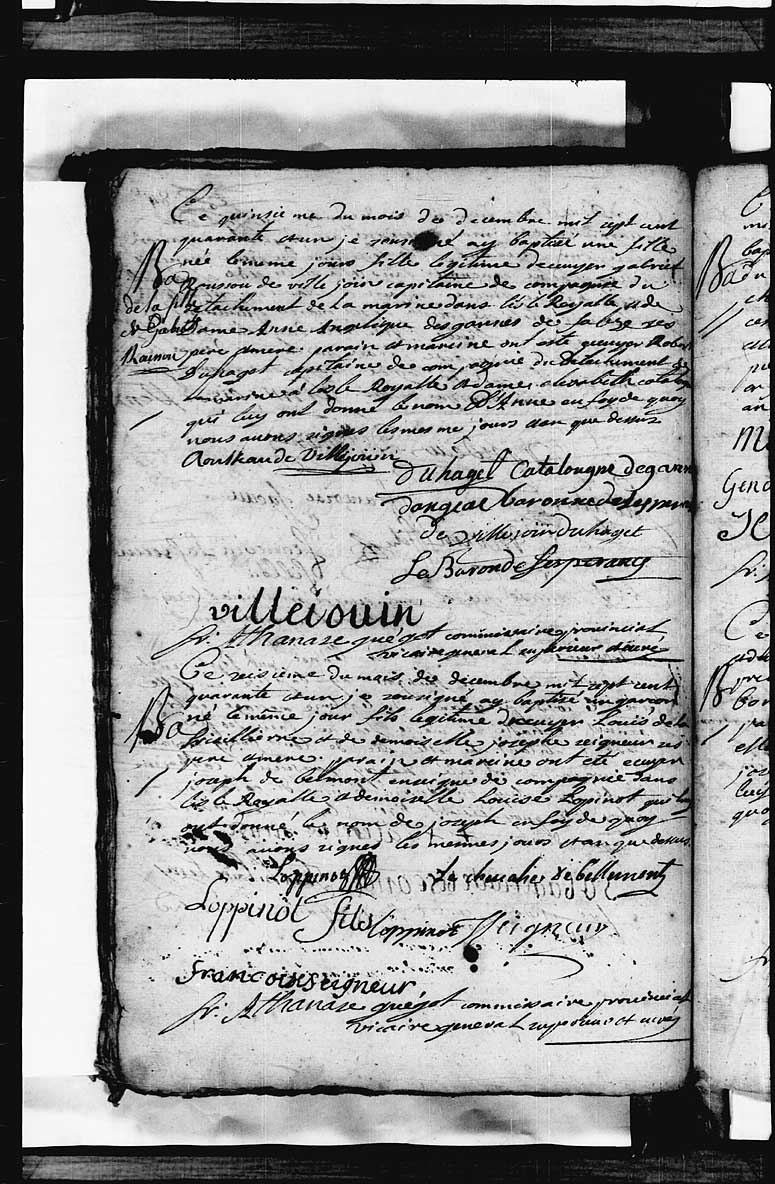 Ce quinsieme du mois de decembre mil sept cent
quarante et un je sousigné ay baptisé une fille
née le meme jours fille legitime decuyer gabriel
Rousseau de ville join capitaine de compagnie du
detachement de la marine dans lisle Royalle et de
dame Anne Angelique desgannes de falaize ses
père et mere parain et mareine ont esté ecuyer Robert
Duhaget capitaine de compagnie du detachement de
la marine à lisle Royalle et dame elisabeth catalogne
qui luy ont donné le nom D'Anne en foy de quoy
nous avons signés les mesme jours et an que dessus
Ba
de la fille
de Gabriel
Rousseau
Rousseau de Villejouin
duhaget Catalougne degannes
dangeac baronne de Lesperance
de villejoin duhaget
Le Baron de Lesperance
villeiouin
fr. Athanase guégot commissaire provincial
vicaire general superieur et curé
Ce seisieme du mois de decembre mil sept cent
quarante et un je sousigné ay baptisé un garcon
né le même jour fils legitime decuyer Louis de la
Vallierre et de demoiselle josephe seigneur ses
pere et mere parain et mareine ont eté ecuyer
joseph de belmont enseigne de compagnie dans
lisle Royalle et demoiselle Louise Lopinot qui luy
ont donné le nom de joseph en foy de quoy
nous avons signés les mesmes jours et an que dessus
Ba
Loppinot
Le chevalier de bellemont
Loppinot fils Loppinot Seigneur
francois seigneur
fr. Athanase guégot commissaire provincial
vicaire general superieur et curé